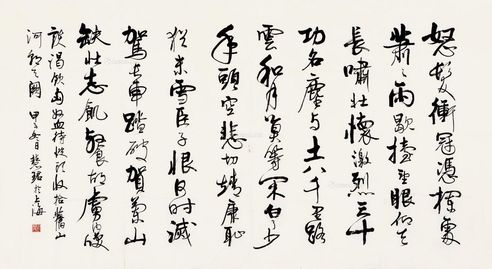 怒髮衝冠憑欄處
蕭〻雨歇抬望眼仰天
長嘯壯懷激烈三十
功名塵與土八千里路
雲和月莫等閒白了少
年頭空悲切靖康恥
猶未雪臣子恨何時滅
駕長車踏破賀蘭山
缺壯志飢餐胡虜肉笑
談渴飲匈奴血待從頭收拾舊山
河朝天闕 甲子冬日 慧珺於上海